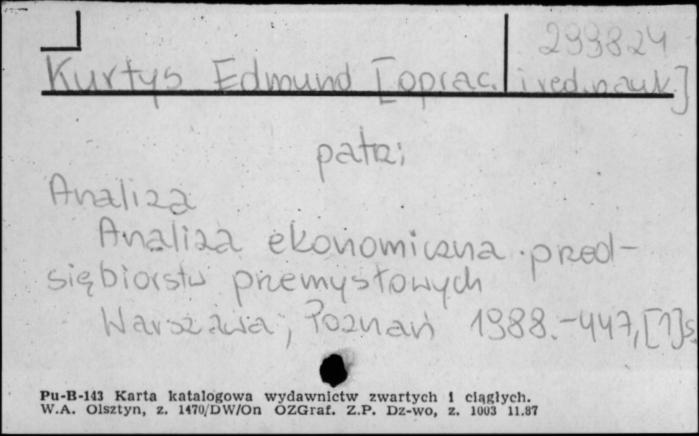 299824
Kurtys Edmund [oprac. i red. nauk.]
patrz:
Analiza
Analiza ekonomiczna przed-
siębiorstw przemysłowych
Warszawa; Poznań 1988. - 447, [1] s.
Pu-B-143 Karta katalogowa wydawnictw zwartych i ciągłych.
W.A. Olsztyn, z. 1470/DW/On OZGraf. Z.P. Dz-wo, z. 1003 11.87